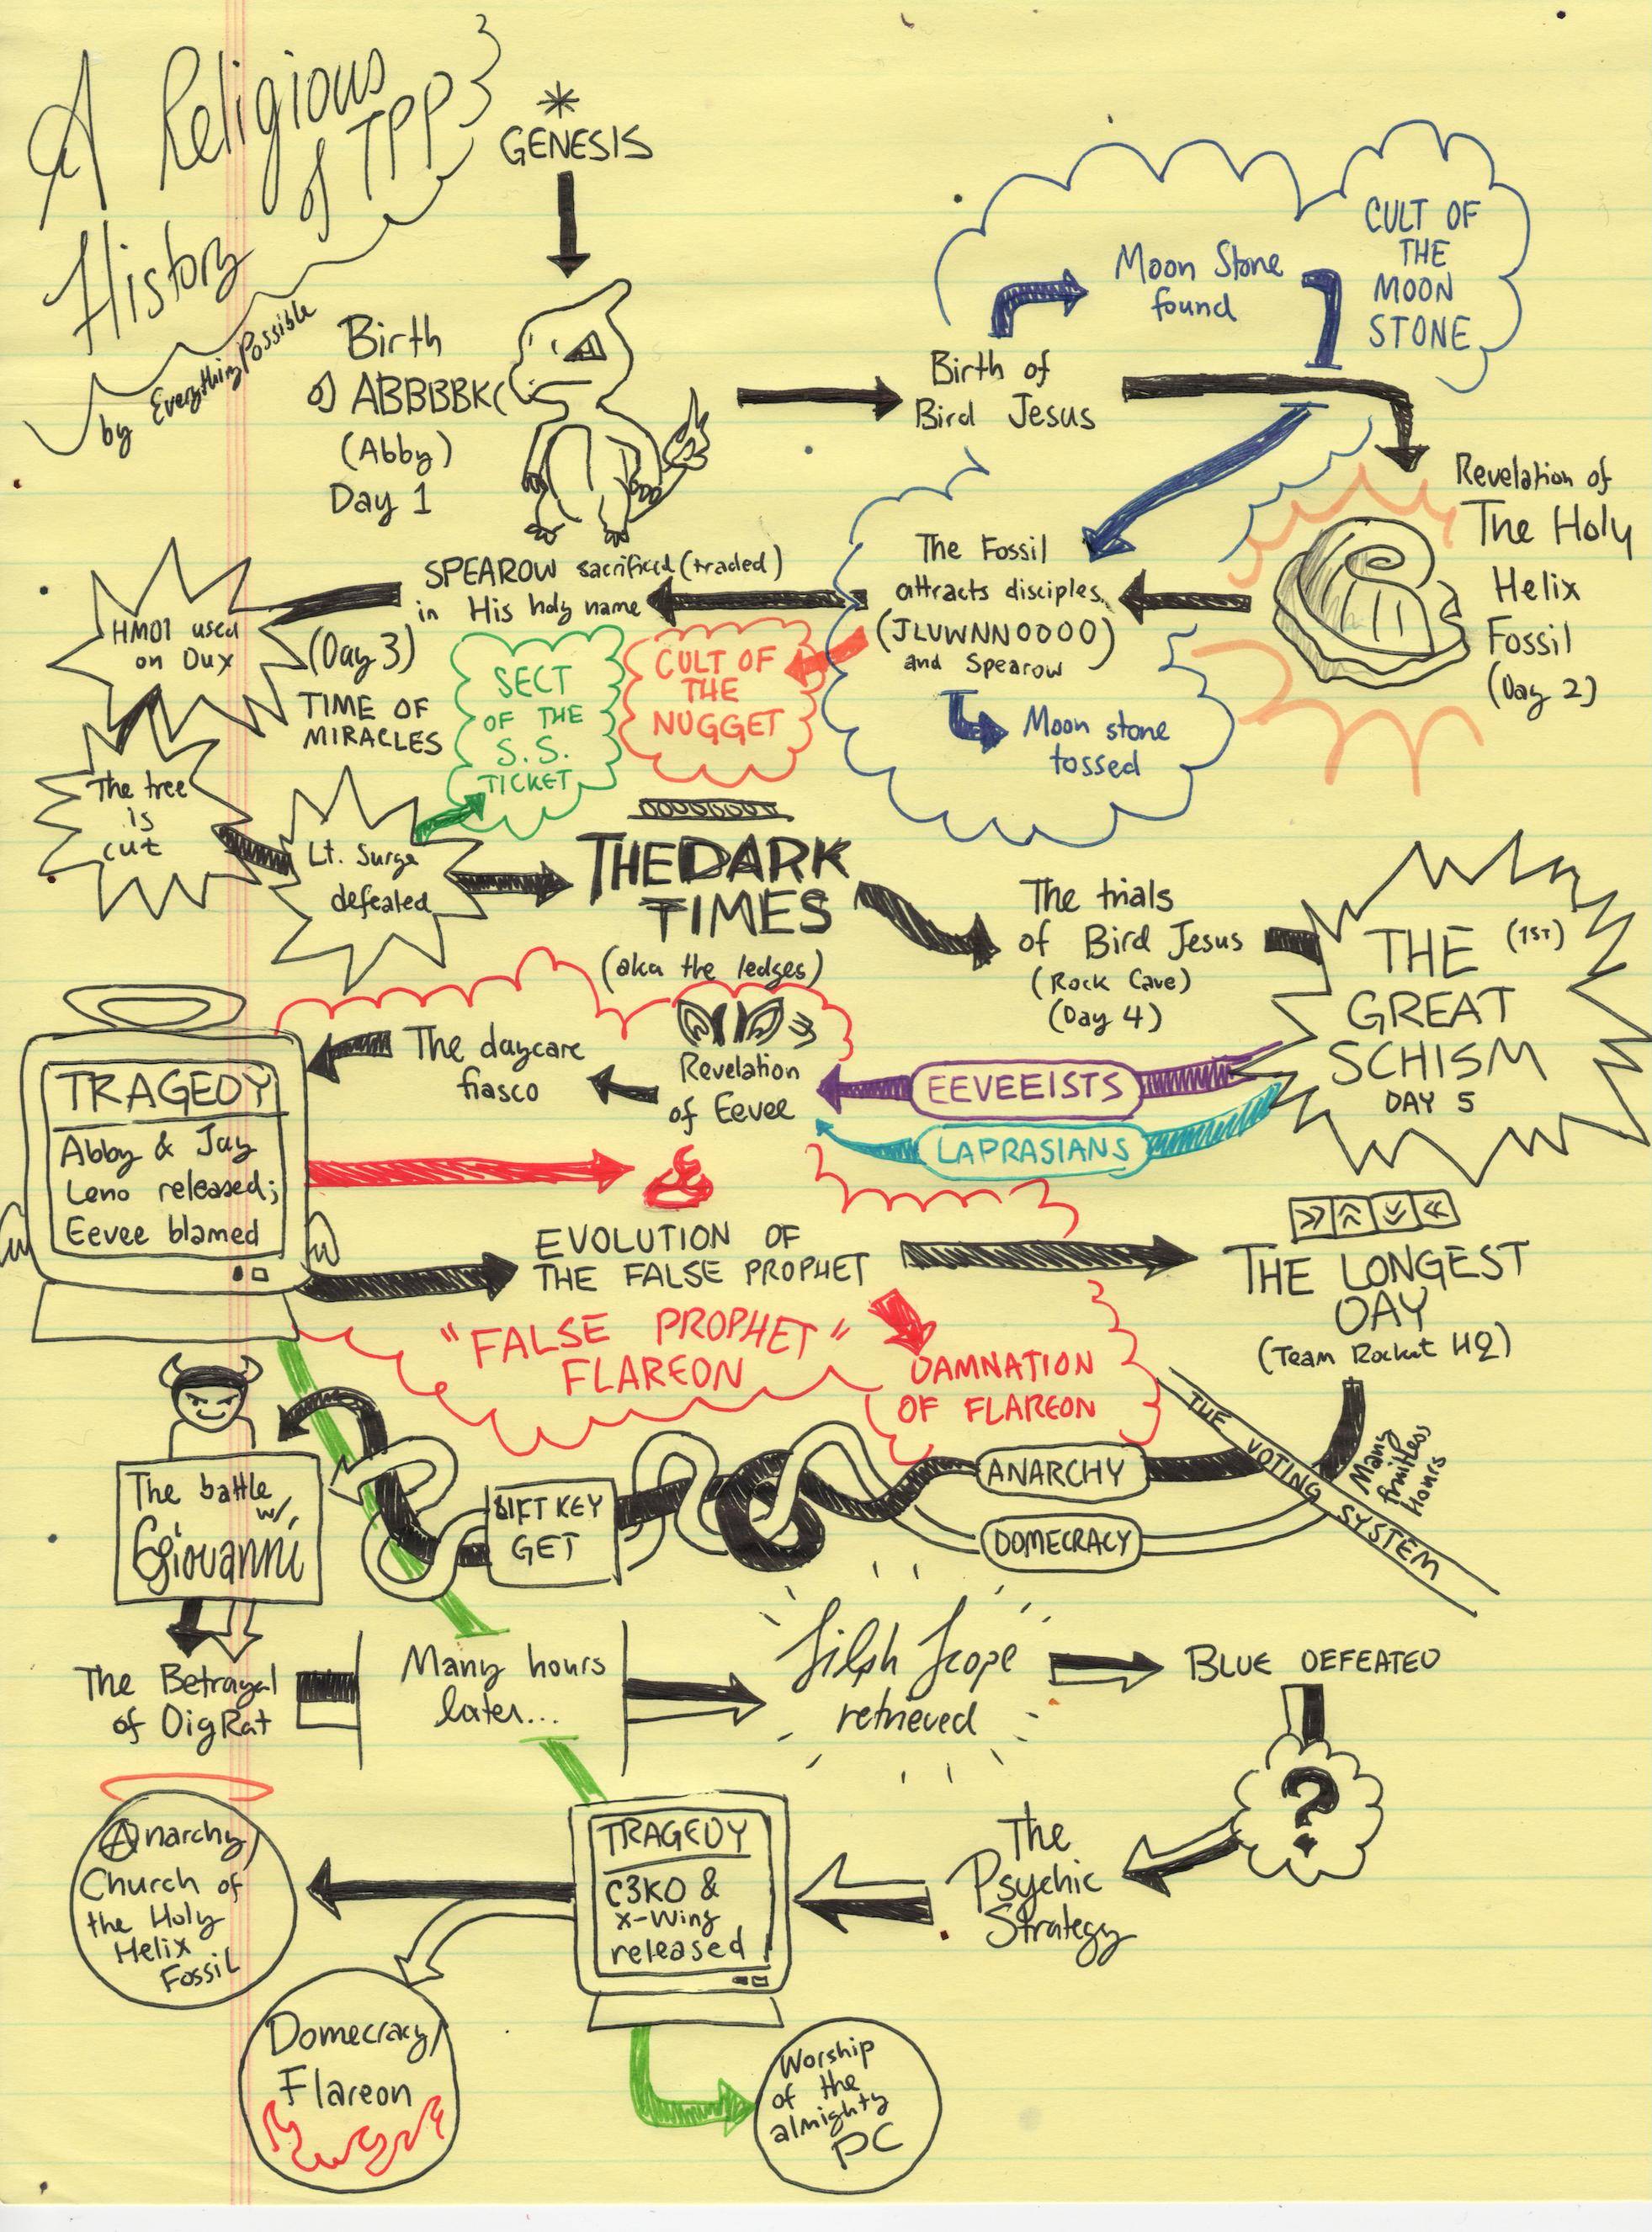 A Religious
History of TPP
by EverythingPossible
GENESIS
Birth
of ABBBBK(
(Abby)
Day 1
Birth of
Bird Jesus
Moon Stone
found
CULT OF
THE
MOON
STONE
Revelation of
The Holy
Helix
Fossil
(Day 2)
The Fossil
attracts disciples
(JLVWNNOOOO)
and Spearow
Moon stone
tossed
CULT OF
THE
NUGGET
SPEAROW sacrificed (traded)
in His holy name
(Day 3)
TIME OF
MIRACLES
HM01 used
on Dux
The tree
is
cut
Lt. Surge
defeated
SECT
OF THE
S.S.
TICKET
THE DARK
TIMES
(aka the ledges)
The trials
of Bird Jesus
(Rock Cave)
(Day 4)
THE (1ST)
GREAT
SCHISM
DAY 5
EEVEEISTS
LAPRASIANS
Revelation
of Eevee
The daycare
fiasco
TRAGEDY
Abby & Jay
Leno released;
Eevee blamed
EVOLUTION OF
THE FALSE PROPHET
"FALSE PROPHET"
FLAREON
DAMNATION
OF FLAREON
THE LONGEST
DAY
(Team Rocket HQ)
Many
fruitless
Hours
THE VOTING SYSTEM
ANARCHY
DOMECRACY
LIFT KEY
GET
The battle
w/
Giovanni
The Betrayal
of DigRat
Many hours
later...
Silph Scope
retrieved
BLUE DEFEATED
?
The
Psychic
Strategy
TRAGEDY
C3KO &
X-Wing
released
Anarchy/
Church of
the Holy
Helix
Fossil
Domecracy/
Flareon
Worship
of the
almighty
PC